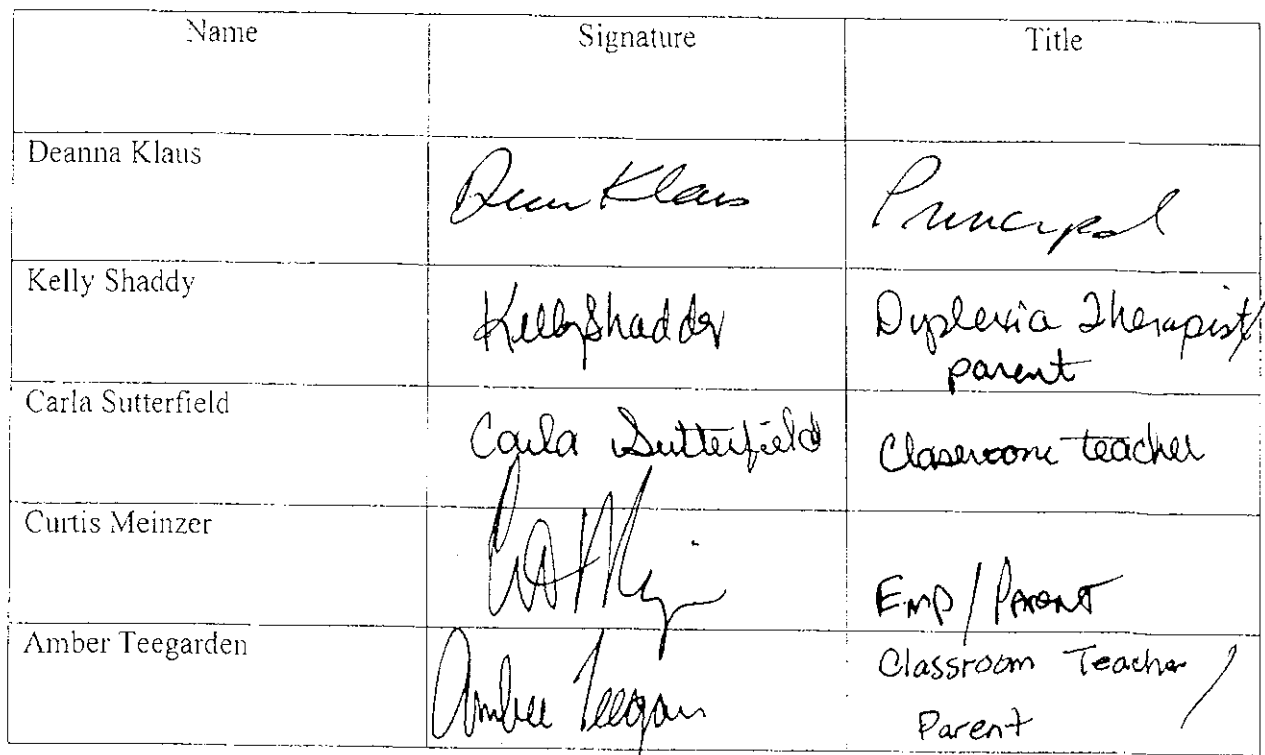 Name Signature Title
Deanna Klaus Klaus Principal
Kelly Shaddy Kelly Shaddy Dyslexia Therapist/
parent
Carla Sutterfield Carla Sutterfield Classroom teacher
Curtis Meinzer Emp/Parent
Amber Teegarden Amber Classroom Teacher/
Parent